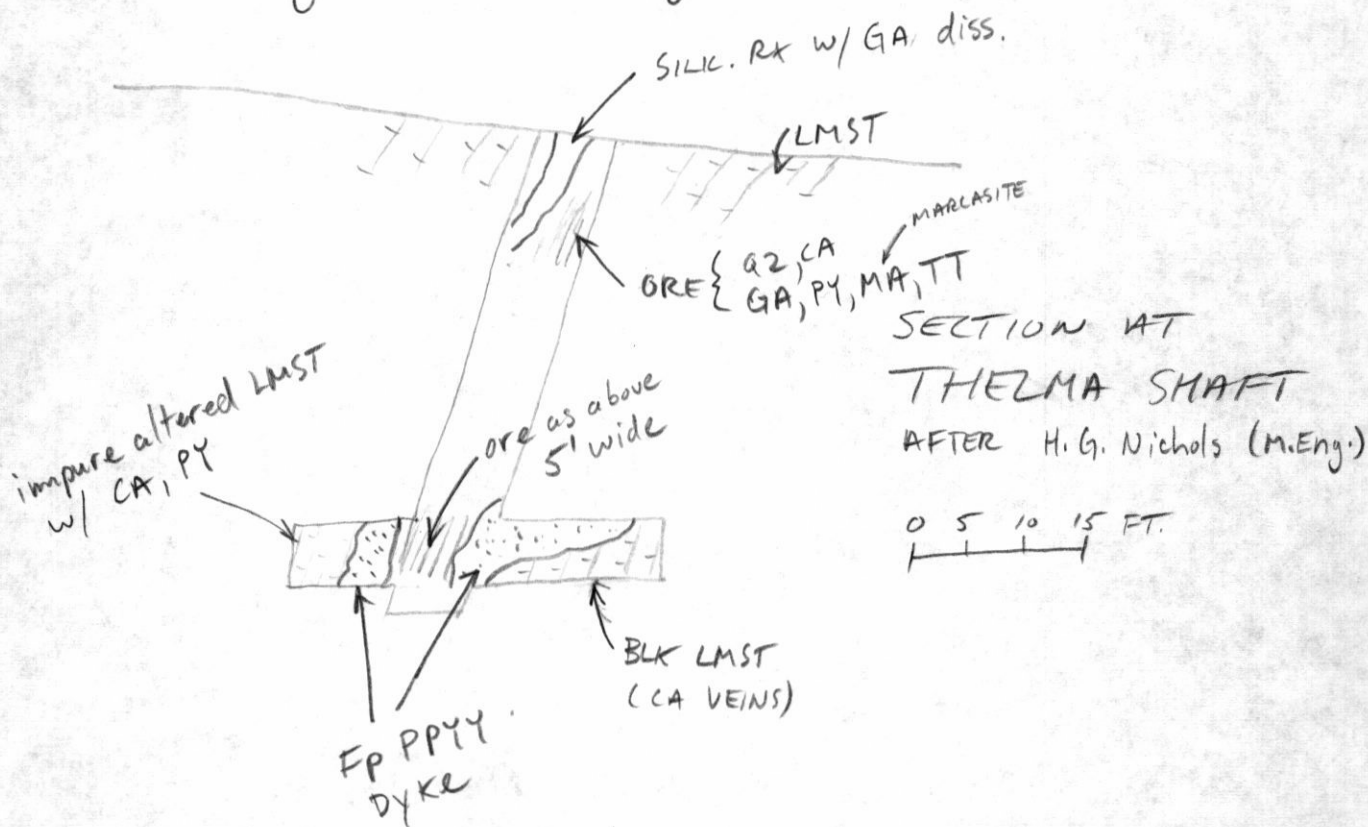 SILIC. RX w/ GA diss.
LMST
MARCASITE
ORE { QZ, CA
GA, PY, MA, TT
SECTION AT
THELMA SHAFT
AFTER H.G. Nichols (M.Eng.)
0 5 10 15 FT.
impure altered LMST
w/ CA, PY
ore as above
5' wide
BLK LMST
(CA VEINS)
Fp PPYY
Dyke